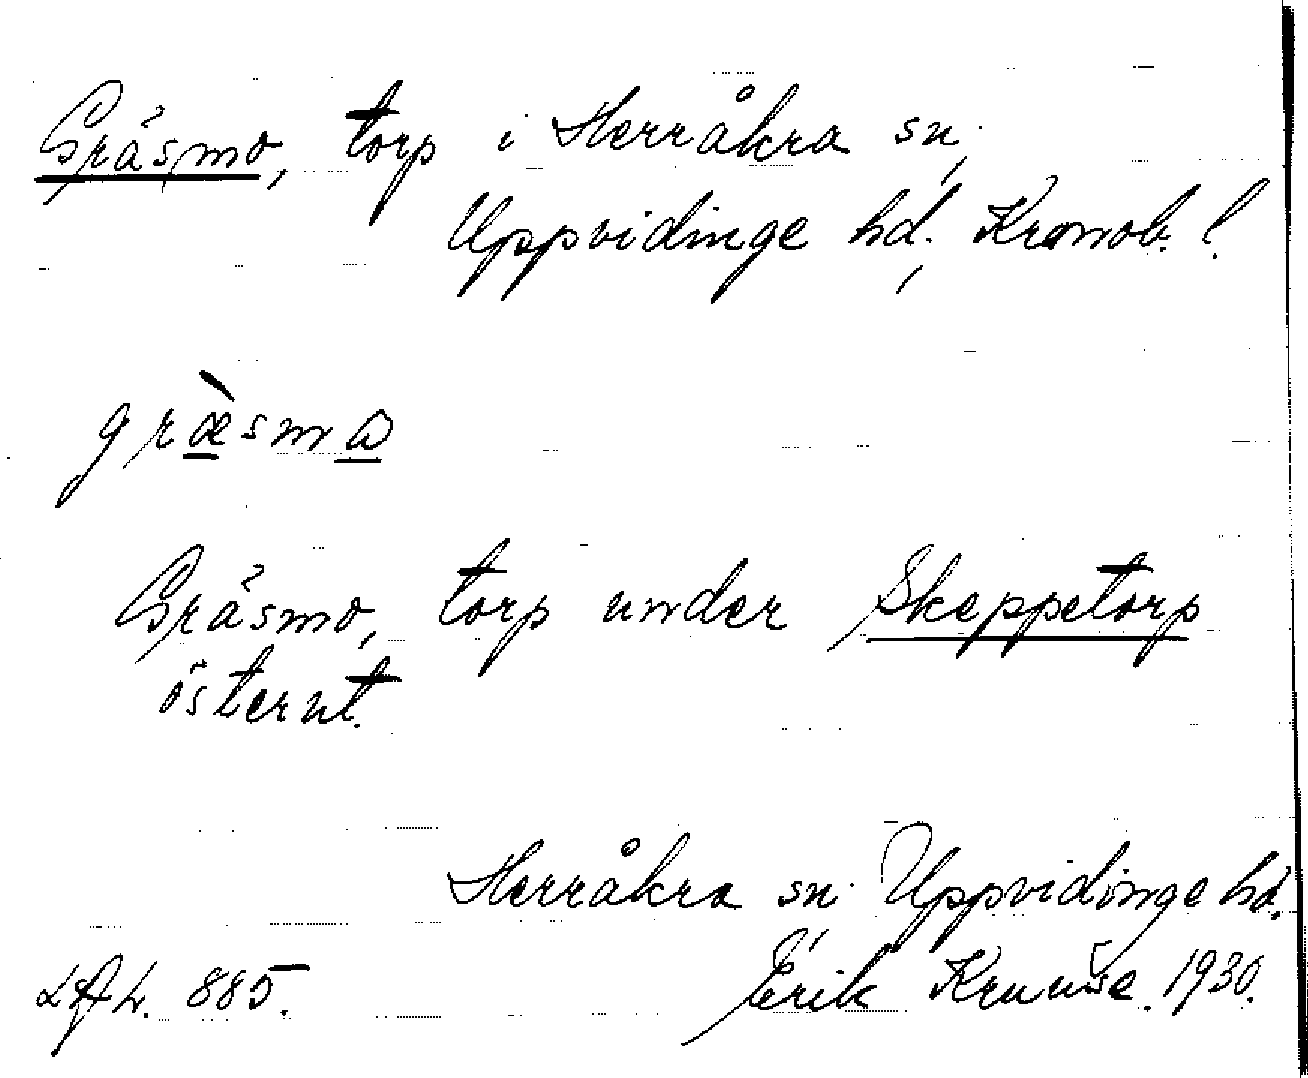 Gräsmo, torp i Herråkra sn,
Uppvidinge hd, Kronob. l.
græ̀smɷ
Gräsmo, torp under Skeppetorp
österut.
Herråkra sn. Uppvidinge hd.
885. Erik Kruuse. 1930.